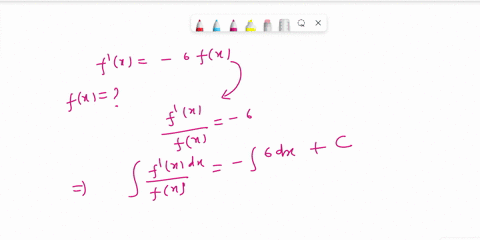 f'(x) = - 6 f(x)
f(x) = ?
f'(x) / f(x) = - 6
⇒ ∫ f'(x) dx / f(x) = - ∫ 6dx + C